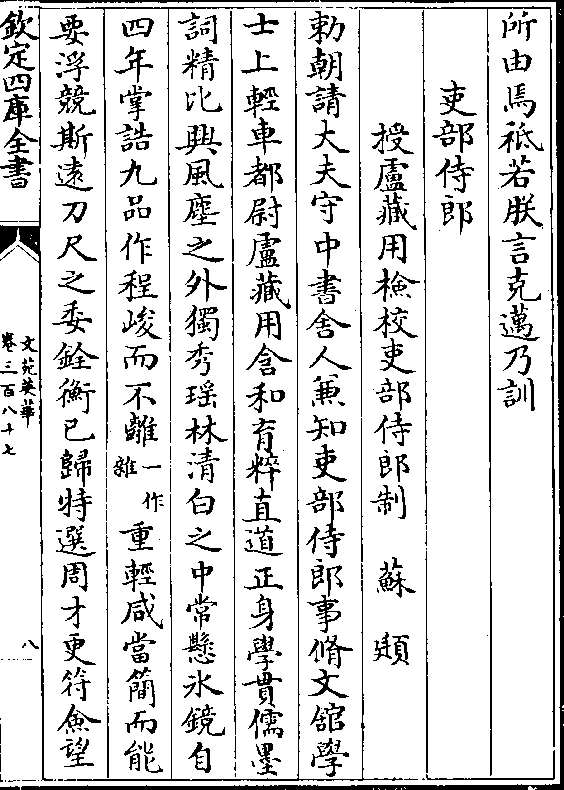 所由焉祗若朕言克邁乃訓
吏部侍郎
授盧藏用檢校吏部侍郎制 蘇頲
勅朝請大夫守中書舍人兼知吏部侍郎事脩文舘學
士上輕車都尉盧藏用含和育粹直道正身學貫儒墨
詞精比興風塵之外獨秀瑶林清白之中常懸氷鏡自
四年掌誥九品作程峻而不離一作雜重輕咸當簡而能
要浮競斯逺刀尺之委銓衡已歸特選周才更符僉望
欽定四庫全書
文苑英華
卷三百八十七
八